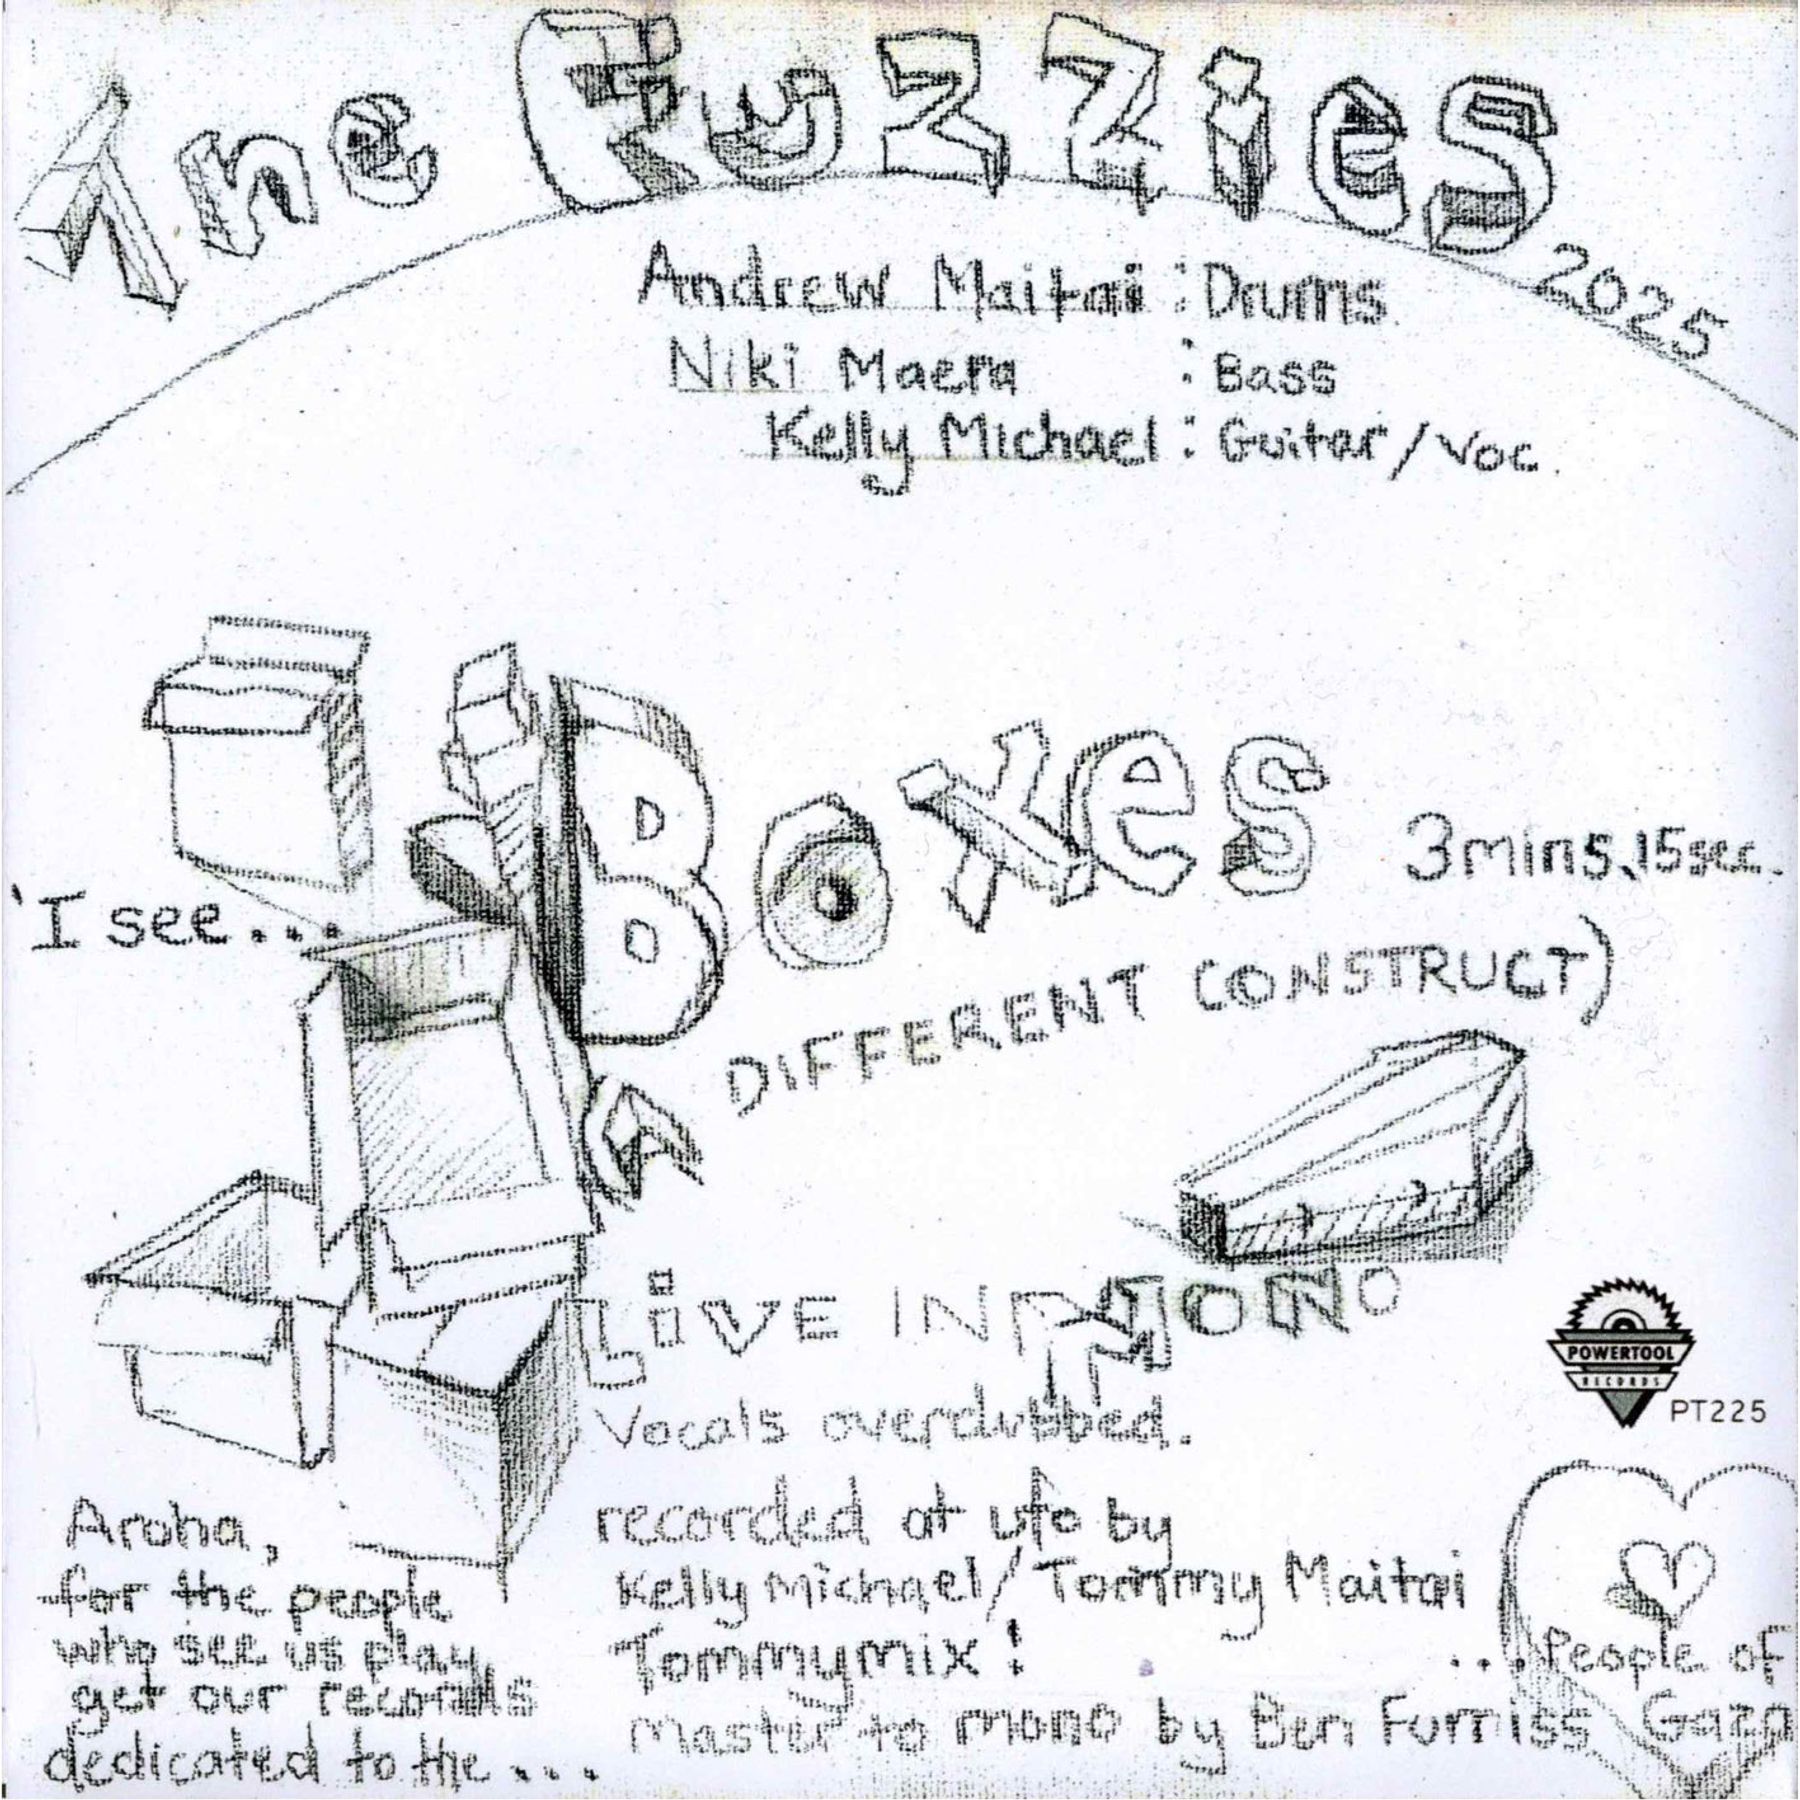 The Fuzzies
2025
Andrew Maitai : Drums
Niki Maera : Bass
Kelly Michael : Guitar/Voc.
'I see...
Boxes 3mins, 15sec.
(A DIFFERENT CONSTRUCT)
LiVE IN MONO
Vocals overdubbed.
recorded at ufo by
Kelly Michael/Tommy Maitai
Tommymix!
Master to mono by Ben Furniss
POWERTOOL
RECORDS
PT225
Aroha,
for the people
who see us play
get our records
dedicated to the ...
... People of
Gaza